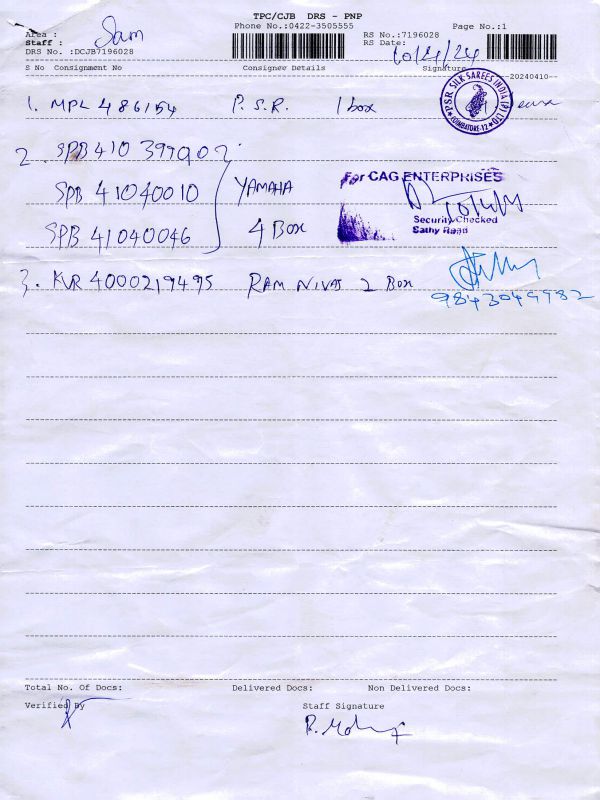 TPC/CJB DRS - PNP
Phone No.:0422-3505555 Page No.:1
Area : Sam RS No.:7196028
Staff : RS Date: 10/4/24
DRS No. :DCJB7196028
S No Consignment No Consignee Details Signature
20240410
1. MPL 486154 P.S.R. 1 box
PSR SILK SAREES INDIA (P) LTD COIMBATORE-12
2. SPB 410 399902
SPB 41040010 YAMAHA
SPB 41040046 4 Box
For CAG ENTERPRISES
10/4/24
Security Checked
Sathy Road
3. KVR 4000219495 RAM NIVAS 2 Box
9843049982
Total No. Of Docs: Delivered Docs: Non Delivered Docs:
Verified By Staff Signature